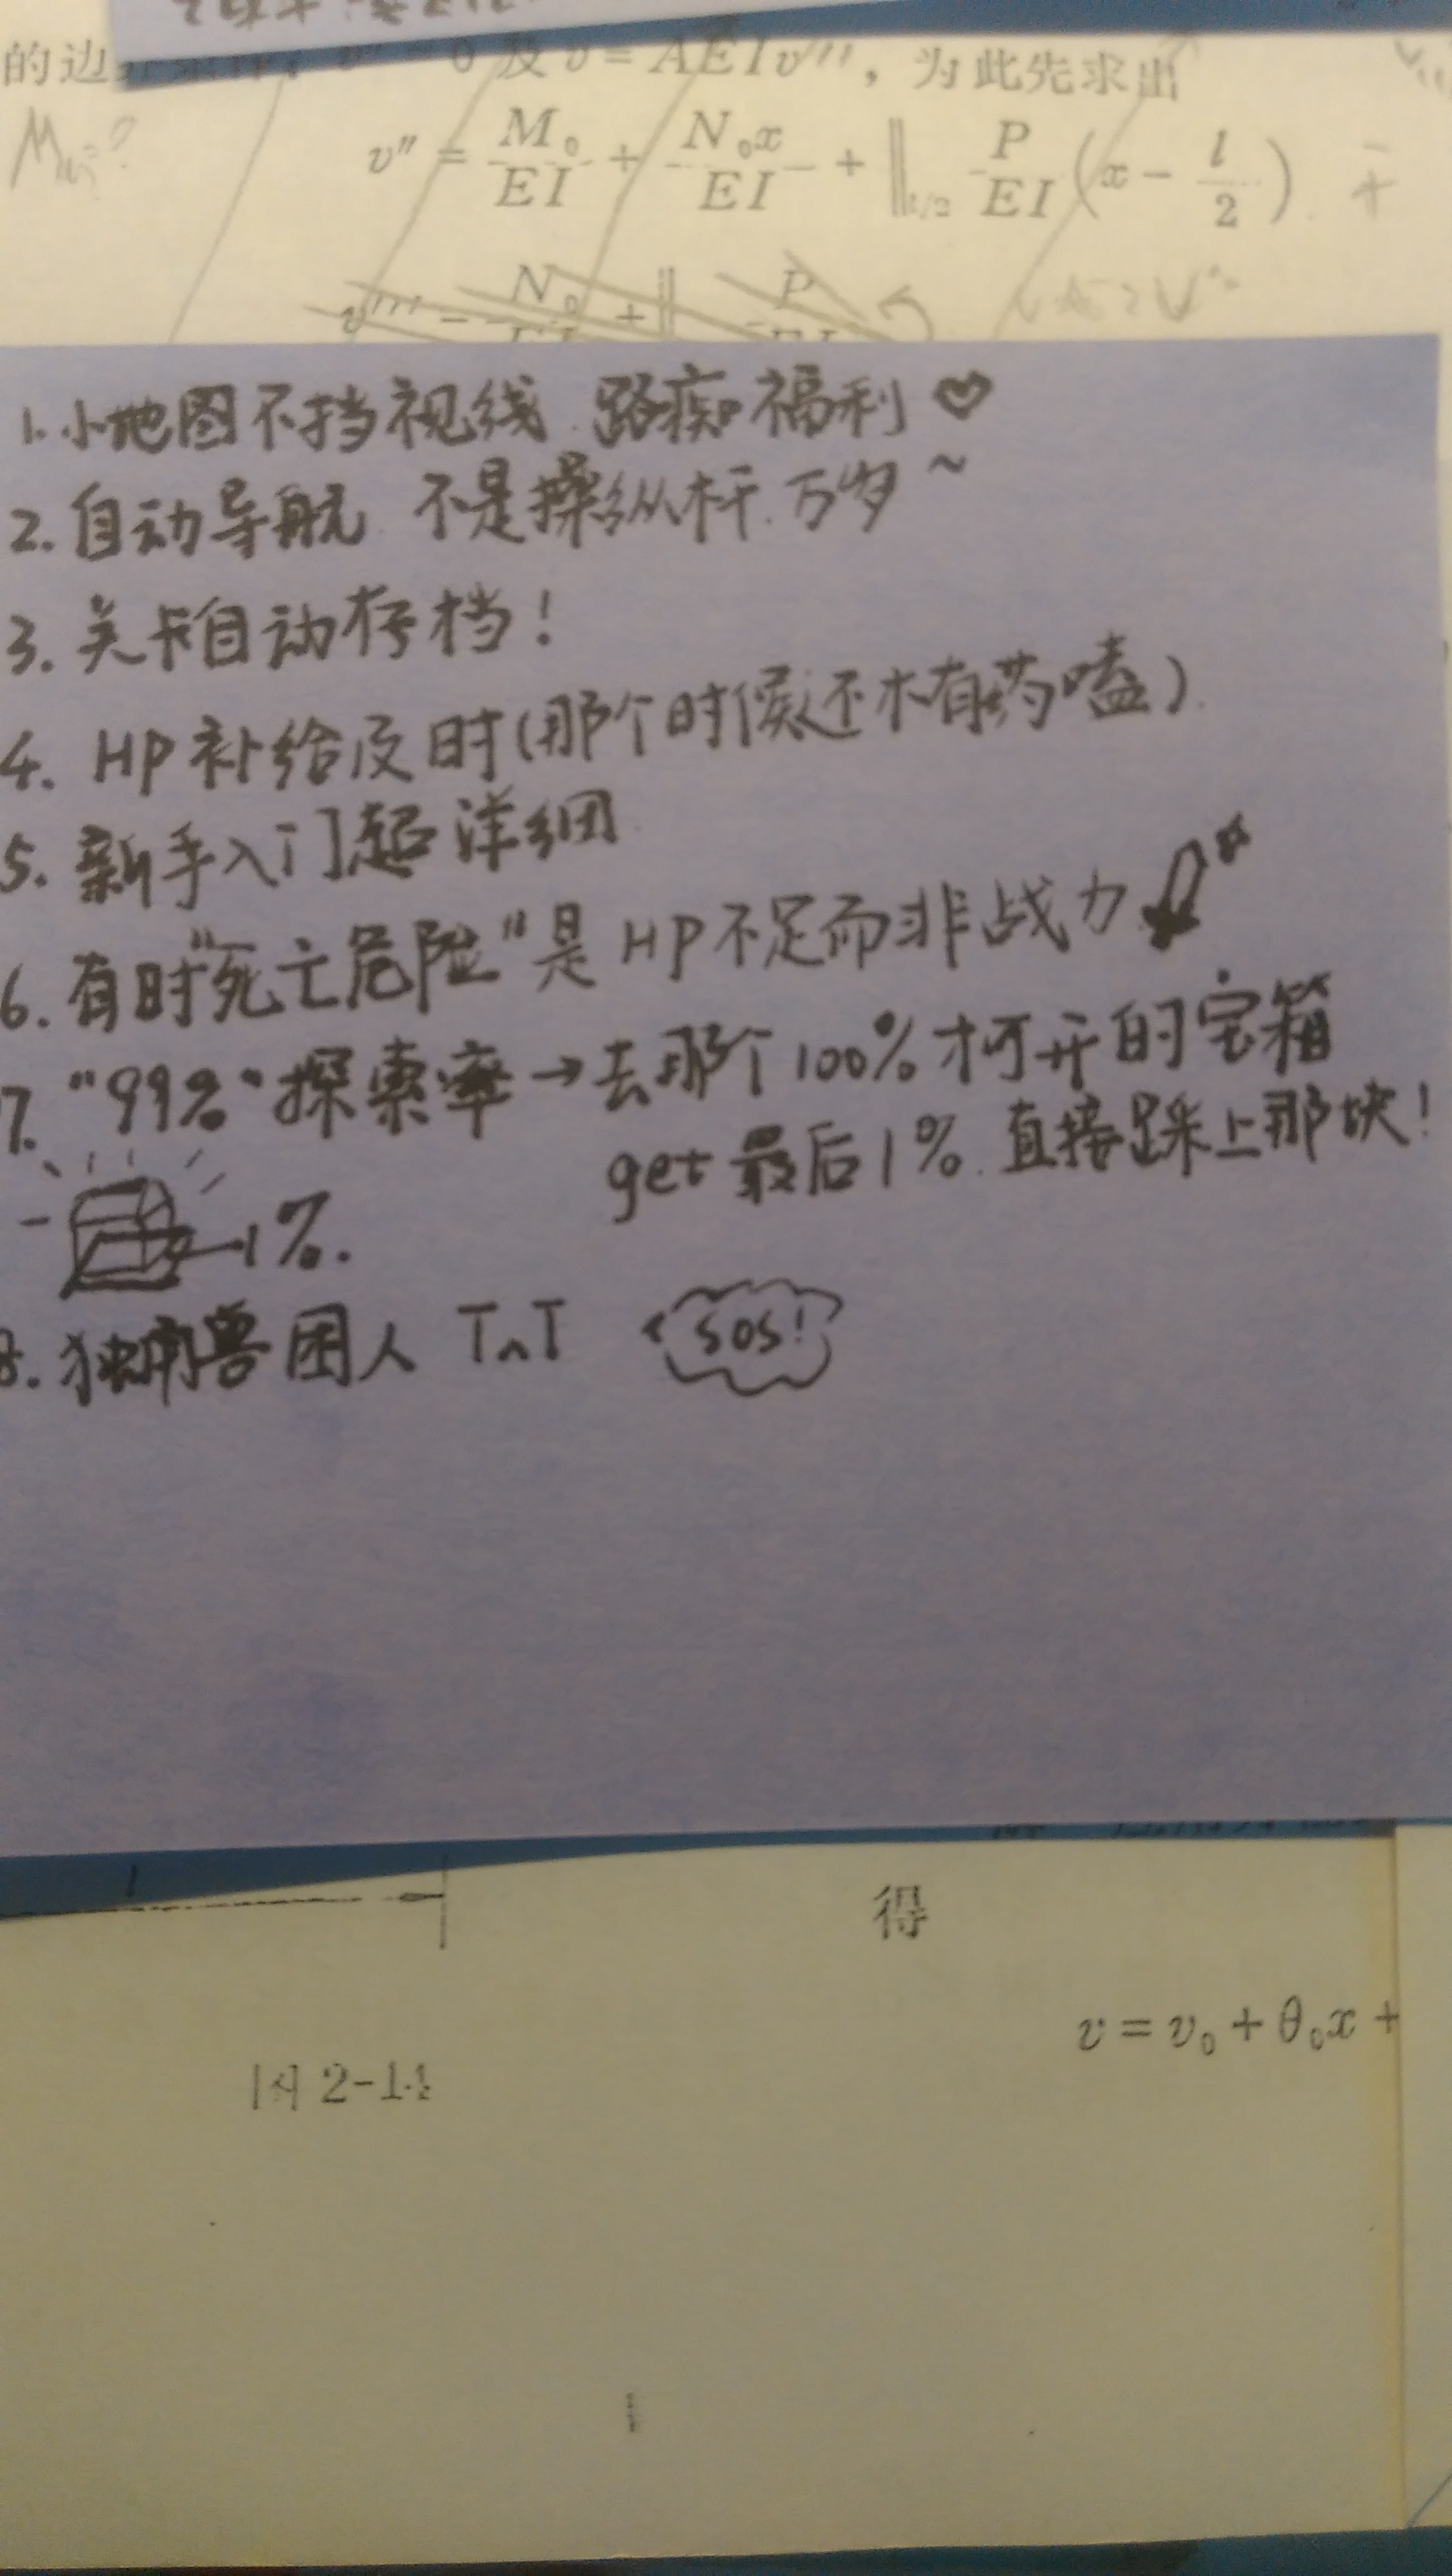 的边 及 v = AEIv''', 为此先求出
v'' = M₀/EI + N₀x/EI + ‖_{l/2} P/EI (x − l/2)
v''' = N₀ + ‖ P
1. 小地图不挡视线 路痴福利 ♡
2. 自动导航 不是操纵杆 万岁~
3. 关卡自动存档!
4. HP补给及时(那个时候还木有药嗑)
5. 新手入门超详细
6. 有时"死亡危险"是HP不足而非战力
7. "99%"探索率→去那个100%才可开的宝箱
get最后1%. 直接踩上那块!
1%.
8. 独角兽困人 TnT SOS!
l
得
v = v₀ + θ₀x +
图 2-14